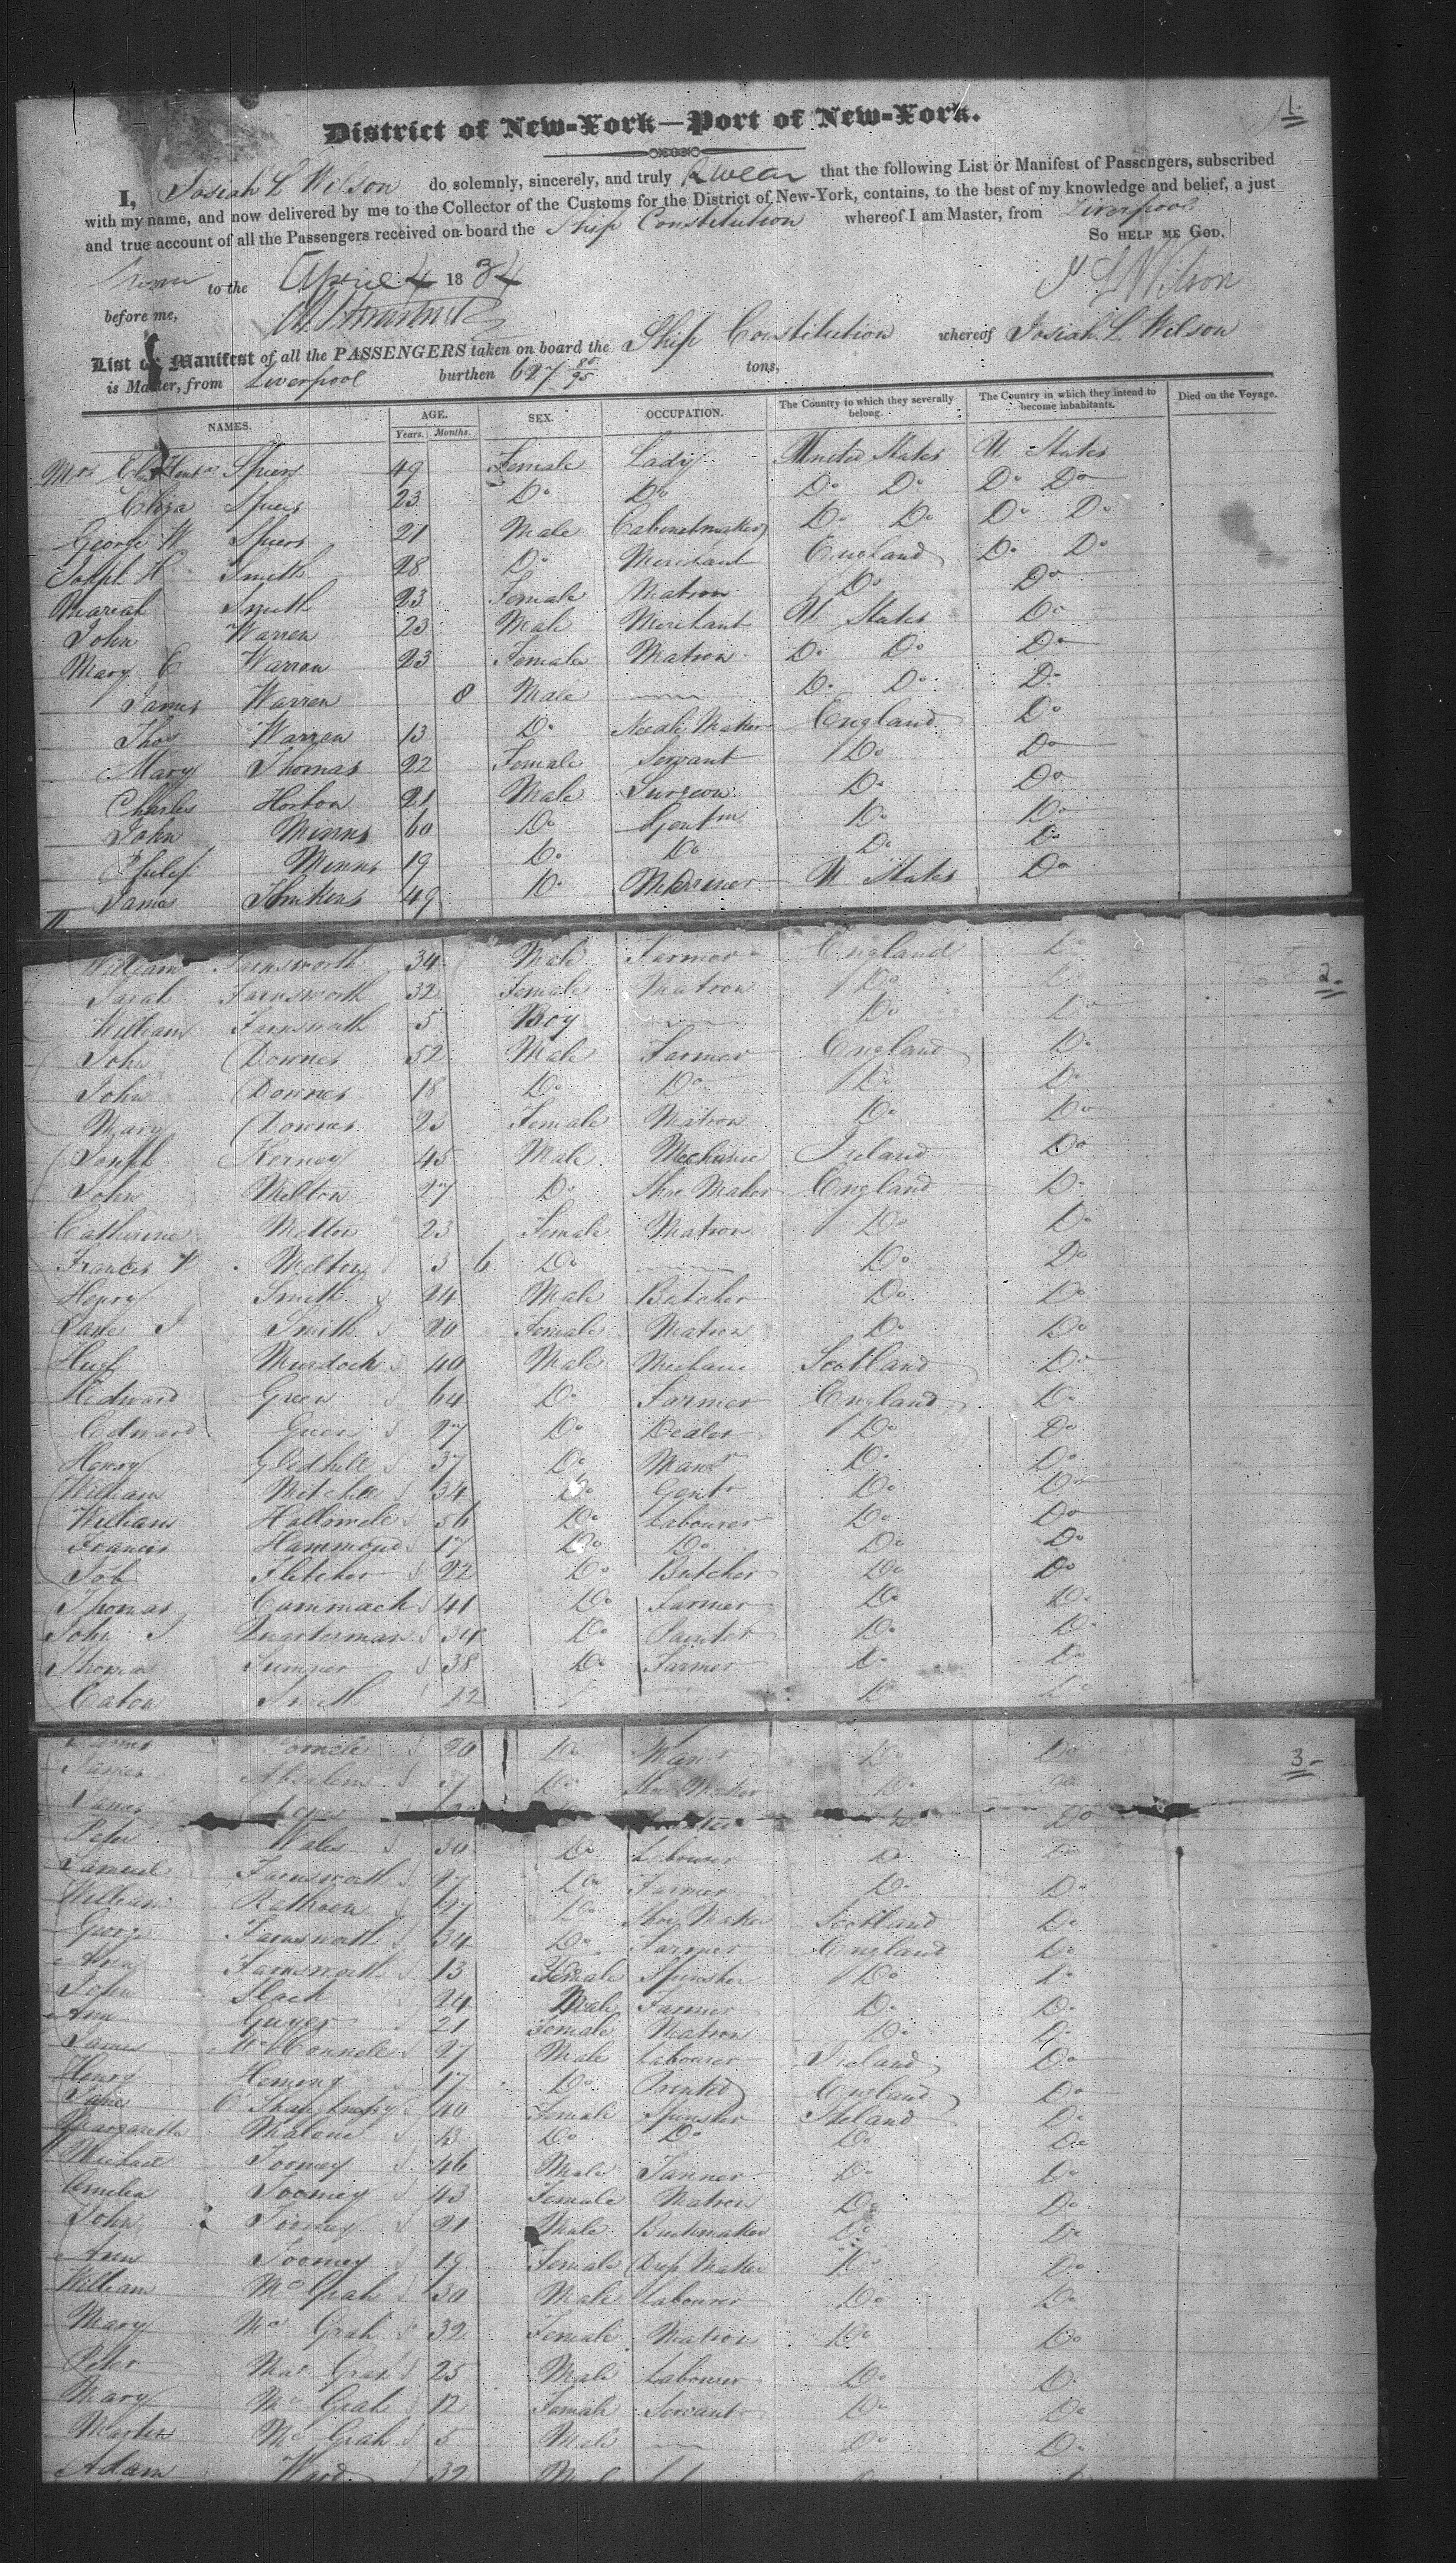 1.
District of New-York—Port of New-York.
I, Josiah L Wilson do solemnly, sincerely, and truly Swear that the following List or Manifest of Passengers, subscribed
with my name, and now delivered by me to the Collector of the Customs for the District of New-York, contains, to the best of my knowledge and belief, a just
and true account of all the Passengers received on board the Ship Constitution whereof I am Master, from Liverpool
SO HELP ME GOD.
Sworn to the April 4 1834
J L Wilson
before me,
List or Manifest of all the PASSENGERS taken on board the Ship Constitution whereof Josiah L. Wilson
is Master, from Liverpool burthen 627 80/95 tons,
NAMES. AGE. SEX. OCCUPATION. The Country to which they severally belong. The Country in which they intend to become inhabitants. Died on the Voyage.
Years. Months.
Mrs Spiers 49 Female Lady United States U States
Eliza Spiers 23 Do Do Do Do Do Do
George W Spiers 21 Male Cabinetmaker Do Do Do Do
Joseph H Smith 28 Do Merchant England Do Do
Mariah Smith 23 Female Matron Do Do
John Warren 23 Male Merchant U States Do
Mary E Warren 23 Female Matron Do Do Do
James Warren 8 Male Do Do Do
Thos Warren 13 Do Neale Maker England Do
Mary Thomas 22 Female Servant Do Do
Charles Horton 21 Male Surgeon Do Do
John Minns 60 Do Gentm Do Do
Minns 19 Do Do Do Do
James 49 Do Mariner U States Do
2.
William Farnsworth 34 Male Farmer England Do
Sarah Farnsworth 32 Female Matron Do Do
William Farnsworth 5 Boy Do Do
John Downes 52 Male Farmer England Do
John Downes 18 Do Do Do Do
Mary Downes 23 Female Matron Do Do
Joseph Kerney 45 Male Mechanic Ireland Do
John Melton 27 Do Shoe Maker England Do
Catherine Melton 23 Female Matron Do Do
Frances W Melton 3 6 Do Do Do
Henry Smith 24 Male Butcher Do Do
Jane J Smith 20 Female Matron Do Do
Huf Murdoch 40 Male Mechanic Scotland Do
Hedward Green 64 Do Farmer England Do
Edward Green 27 Do Dealer Do Do
Henry Gledhill 37 Do Manr Do Do
William Mitchell 34 Do Gentr Do Do
William Hallowell 56 Do Labourer Do Do
Francis Hammond 17 Do Do Do Do
Job Fletcher 22 Do Butcher Do Do
Thomas Cammack 41 Do Farmer Do Do
John J Quarterman 34 Do Painter Do Do
Thomas Sumner 38 Do Farmer Do Do
Eaton Smith 22 Do Do
3
James 20 Do Manr Do Do
James Absalem 37 Do Shoe Maker Do Do
James Do
Peter Wales 30 Do Labourer Do Do
Samuel Farnsworth 27 Do Farmer Do Do
William Rathven 27 Do Shoe Maker Scotland Do
George Farnsworth 34 Do Farmer England Do
Ann Farnsworth 13 Female Spinster Do Do
John Slack 24 Male Farmer Do Do
Ann Guyer 21 Female Matron Do Do
James McConnell 27 Male Labourer Ireland Do
Henry Hemong 17 Do England Do
Jane O'Shaughnesy 40 Female Spinster Ireland Do
Margaretta Malone 13 Do Do Do Do
Michael Toomey 46 Male Tanner Do Do
Amelia Toomey 43 Female Matron Do Do
John Toomey 21 Male Do Do
Ann Toomey 19 Female Dress Maker Do Do
William McGrah 30 Male Labourer Do Do
Mary Mc Grah 32 Female Matron Do Do
Peter Mac Grah 25 Male Labourer Do Do
Mary Mc Grah 12 Female Servant Do Do
Martin Mc Grah 5 Male Do Do
Adam Ward 32 Male